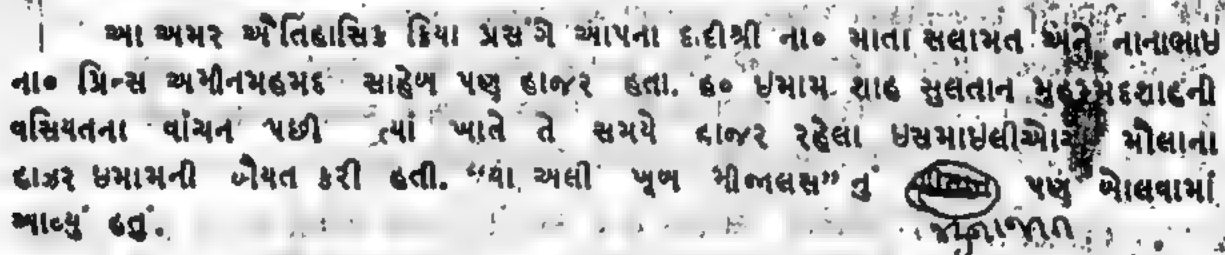 આ અમર ઐતિહાસિક ક્રિયા પ્રસંગે આપના દાદીશ્રી ના૦ માતા સલામત અને નાનાભાઇ
ના૦ પ્રિન્સ અમીનમહમદ સાહેબ પણ હાજર હતા. હ૦ ઇમામ શાહ સુલતાન મુહમ્મદશાહની
વસિયતના વાંચન પછી ત્યાં ખાતે તે સમયે હાજર રહેલા ઇસમાઇલીઓએ મૌલાના
હાઝર ઇમામની બૈયત કરી હતી. “યા અલી ખૂબ મીજાલસ” નું પણ બોલવામાં
આવ્યું હતું.